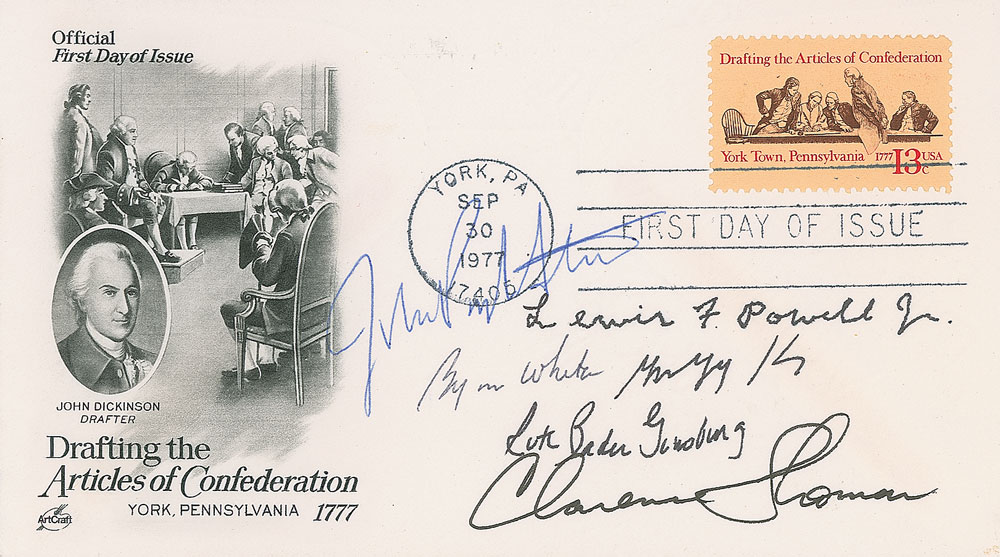 Official
First Day of Issue
Drafting the Articles of Confederation
York Town, Pennsylvania 1777 13c USA
YORK, PA
SEP
30
1977
17405
FIRST DAY OF ISSUE
John Paul Stevens
Lewis F. Powell Jr.
Byron White
Ruth Bader Ginsburg
Clarence Thomas
JOHN DICKINSON
DRAFTER
Drafting the
Articles of Confederation
YORK, PENNSYLVANIA 1777
ArtCraft